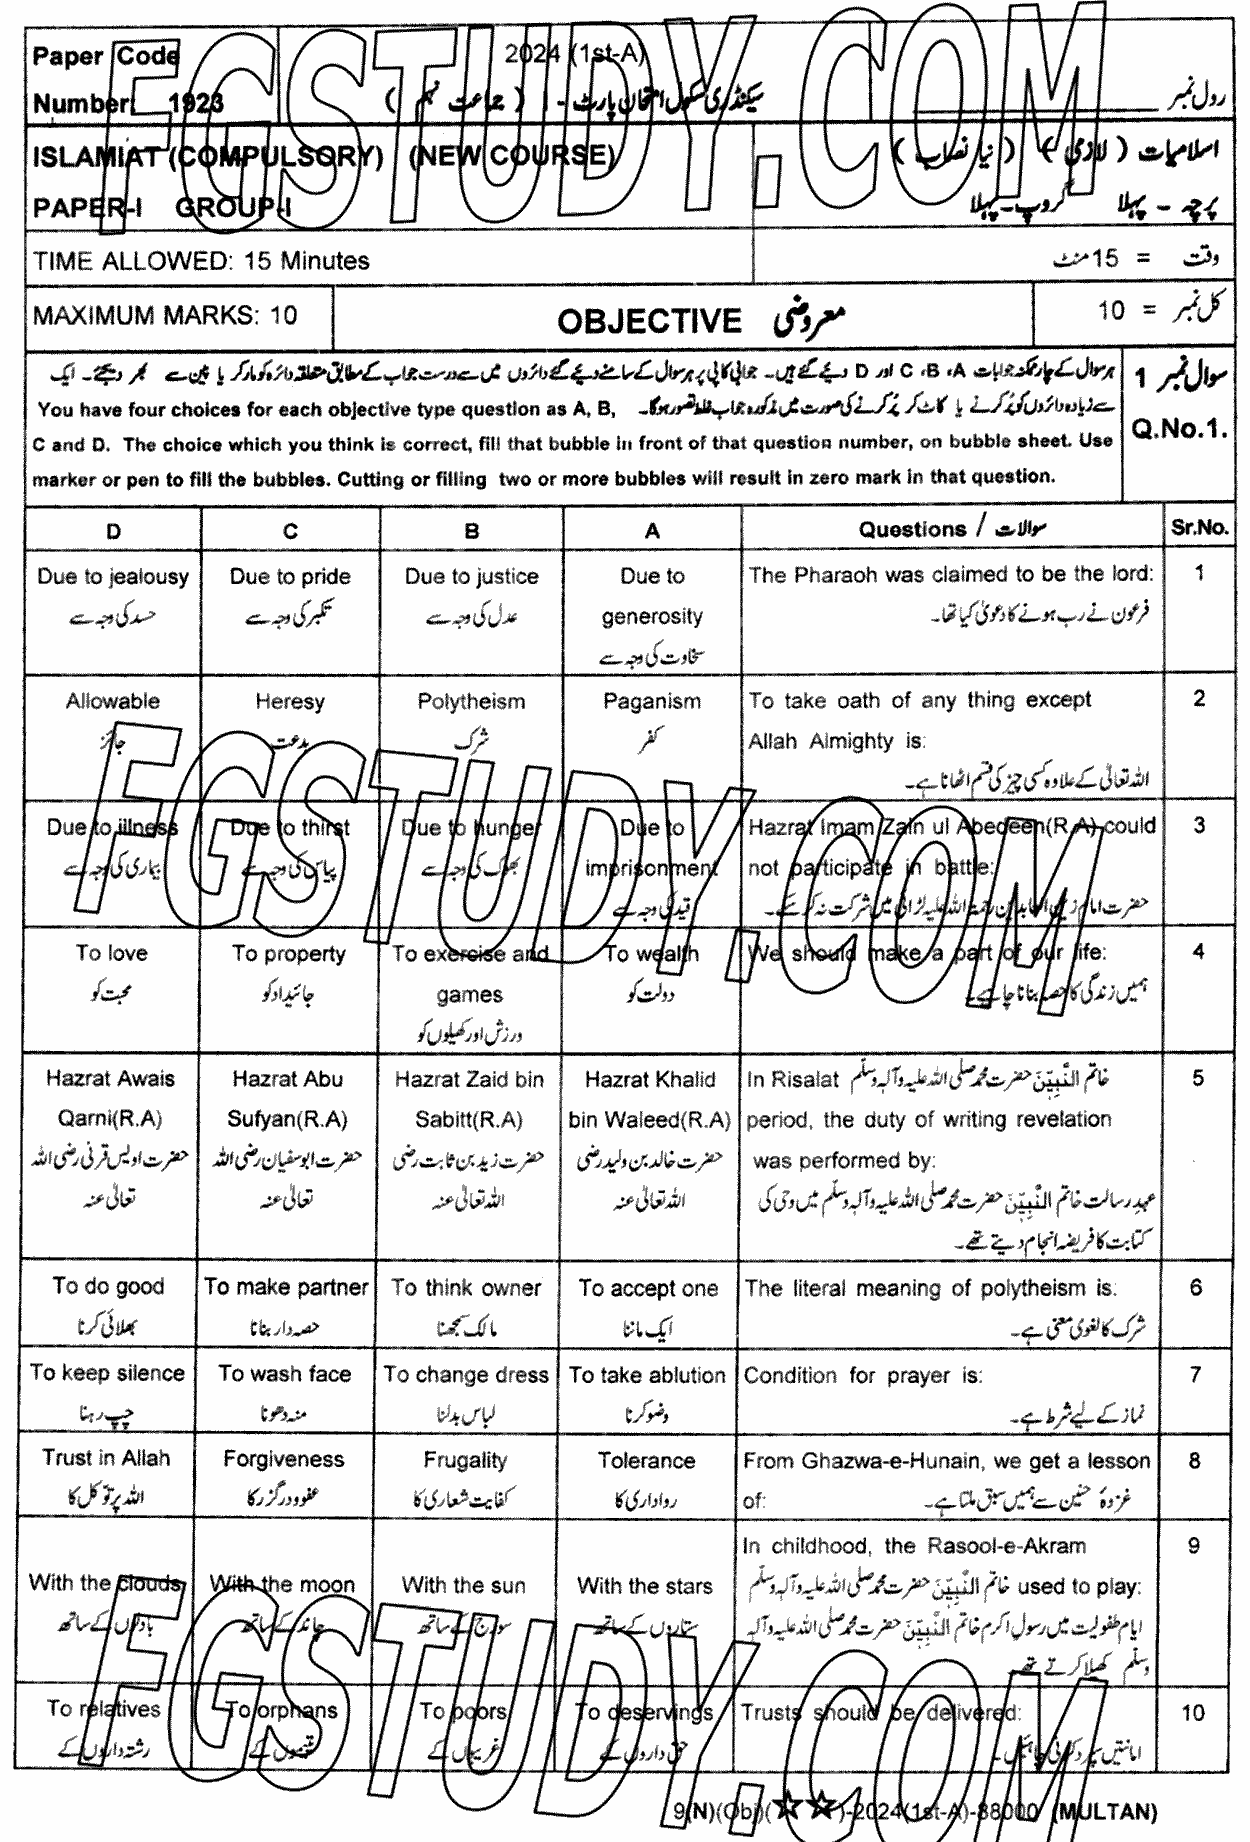 FGSTUDY.COM
Paper Code 2024 (1st-A)
Number: 1923 سیکنڈری سکول امتحان پارٹ - I ( جماعت نہم ) رول نمبر
ISLAMIAT (COMPULSORY) (NEW COURSE) اسلامیات ( لازمی ) ( نیا نصاب )
PAPER-I GROUP-I پرچہ - پہلا گروپ - پہلا
TIME ALLOWED: 15 Minutes وقت = 15 منٹ
MAXIMUM MARKS: 10 OBJECTIVE معروضی کل نمبر = 10
سوال نمبر 1 ہر سوال کے چار ممکنہ جوابات A، B، C اور D دیئے گئے ہیں۔ جوابی کاپی پر ہر سوال کے سامنے دیئے گئے دائروں میں سے درست جواب کے مطابق متعلقہ دائرہ کو مارکر یا پین سے بھر دیجئے۔ ایک
سے زیادہ دائروں کو پُر کرنے یا کاٹ کر پُر کرنے کی صورت میں مذکورہ جواب غلط تصور ہوگا۔ You have four choices for each objective type question as A, B,
Q.No.1.
C and D. The choice which you think is correct, fill that bubble in front of that question number, on bubble sheet. Use
marker or pen to fill the bubbles. Cutting or filling two or more bubbles will result in zero mark in that question.
D C B A Questions / سوالات Sr.No.
Due to jealousy Due to pride Due to justice Due to The Pharaoh was claimed to be the lord: 1
حسد کی وجہ سے تکبر کی وجہ سے عدل کی وجہ سے generosity فرعون نے رب ہونے کا دعویٰ کیا تھا۔
سخاوت کی وجہ سے
Allowable Heresy Polytheism Paganism To take oath of any thing except 2
جائز بدعت شرک کفر Allah Almighty is:
اللہ تعالٰی کے علاوہ کسی چیز کی قسم اٹھانا ہے۔
Due to illness Due to thirst Due to hunger Due to Hazrat Imam Zain ul Abedeen(R.A) could 3
بیماری کی وجہ سے پیاس کی وجہ سے بھوک کی وجہ سے imprisonment not participate in battle:
قید کی وجہ سے حضرت امام زین العابدین رحمۃ اللہ علیہ لڑائی میں شرکت نہ کر سکے۔
To love To property To exercise and To wealth We should make a part of our life: 4
محبت کو جائیداد کو games دولت کو ہمیں زندگی کا حصہ بنانا چاہیے۔
ورزش اور کھیلوں کو
Hazrat Awais Hazrat Abu Hazrat Zaid bin Hazrat Khalid In Risalat خاتم النَّبِيّٖنَ حضرت محمد صلی اللہ علیہ وآلہ وسلّم 5
Qarni(R.A) Sufyan(R.A) Sabitt(R.A) bin Waleed(R.A) period, the duty of writing revelation
حضرت اویس قرنی رضی اللہ حضرت ابوسفیان رضی اللہ حضرت زید بن ثابت رضی حضرت خالد بن ولید رضی was performed by:
تعالٰی عنہ تعالٰی عنہ اللہ تعالٰی عنہ اللہ تعالٰی عنہ عہدِ رسالت خاتم النَّبِيّٖنَ حضرت محمد صلی اللہ علیہ وآلہ وسلّم میں وحی کی
کتابت کا فریضہ انجام دیتے تھے۔
To do good To make partner To think owner To accept one The literal meaning of polytheism is: 6
بھلائی کرنا حصہ دار بنانا مالک سمجھنا ایک ماننا شرک کا لغوی معنٰی ہے۔
To keep silence To wash face To change dress To take ablution Condition for prayer is: 7
چپ رہنا منہ دھونا لباس بدلنا وضو کرنا نماز کے لیے شرط ہے۔
Trust in Allah Forgiveness Frugality Tolerance From Ghazwa-e-Hunain, we get a lesson 8
اللہ پر توکل کا عفو و درگزر کا کفایت شعاری کا رواداری کا of: غزوۂ حنین سے ہمیں سبق ملتا ہے۔
In childhood, the Rasool-e-Akram 9
With the clouds With the moon With the sun With the stars خاتم النَّبِيّٖنَ حضرت محمد صلی اللہ علیہ وآلہ وسلّم used to play:
بادلوں کے ساتھ چاند کے ساتھ سورج کے ساتھ ستاروں کے ساتھ ایام طفولیت میں رسول اکرم خاتم النَّبِيّٖنَ حضرت محمد صلی اللہ علیہ وآلہ
وسلّم کھیلا کرتے تھے
To relatives To orphans To poors To deservings Trusts should be delivered: 10
رشتہ داروں کے یتیموں کے غریبوں کے حق داروں کے امانتیں سپرد کرنی چاہئیں۔
9(N)(Obj)(☆☆)-2024(1st-A)-38000 (MULTAN)
FGSTUDY.COM
FGSTUDY.COM